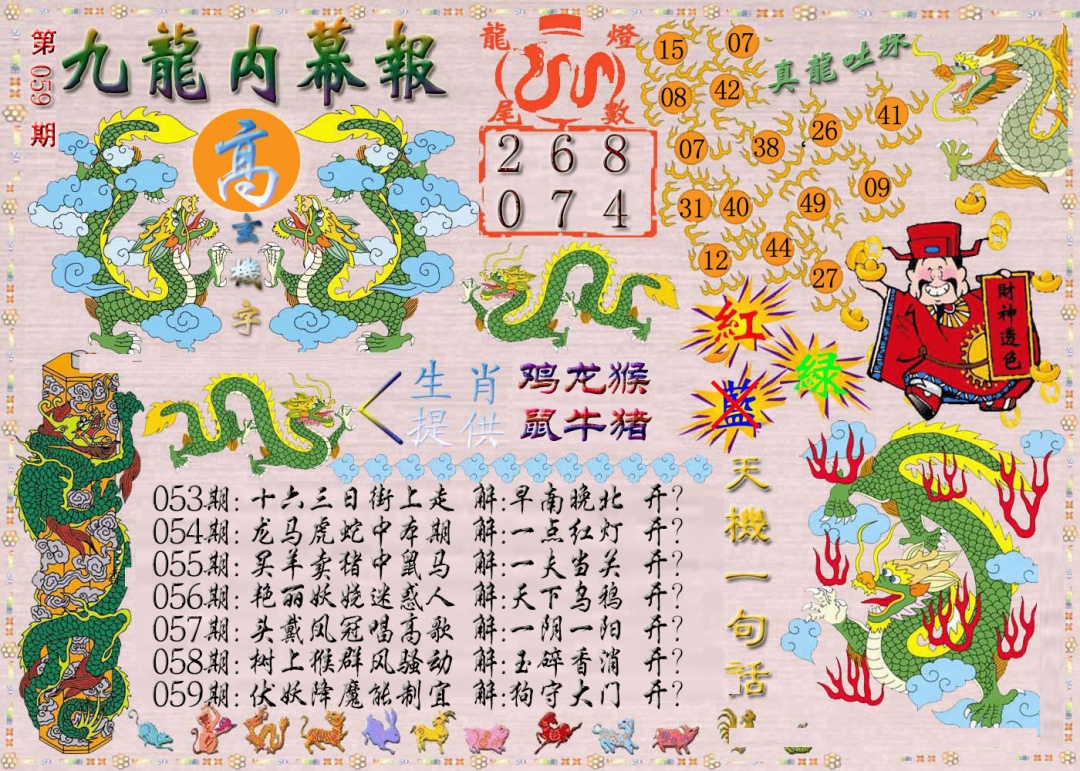 第059期
九龍内幕報
高
玄機字
龍燈
尾數
2 6 8
0 7 4
真龍吐珠
15 07
08 42
41
26
07 38
09
31 40 49
44
12 27
財神透色
紅
绿
蓝
生肖 鸡龙猴
提供 鼠牛猪
053期:十六三日街上走 解:早南晚北 开?
054期:龙马虎蛇中本期 解:一点红灯 开?
055期:买羊卖猪中鼠马 解:一夫当关 开?
056期:艳丽妖娆迷惑人 解:天下乌鸦 开?
057期:头戴凤冠唱高歌 解:一阴一阳 开?
058期:树上猴群风骚动 解:玉碎香消 开?
059期:伏妖降魔能制宜 解:狗守大门 开?
天機一句话